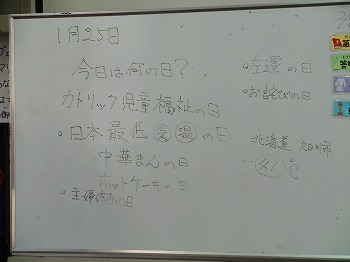 1月25日
今日は何の日?
カトリック児童福祉の日
・日本最低気温の日
中華まんの日
ホットケーキの日
・主婦休みの日
・左遷の日
・お詫びの日
北海道 旭川市
-41℃